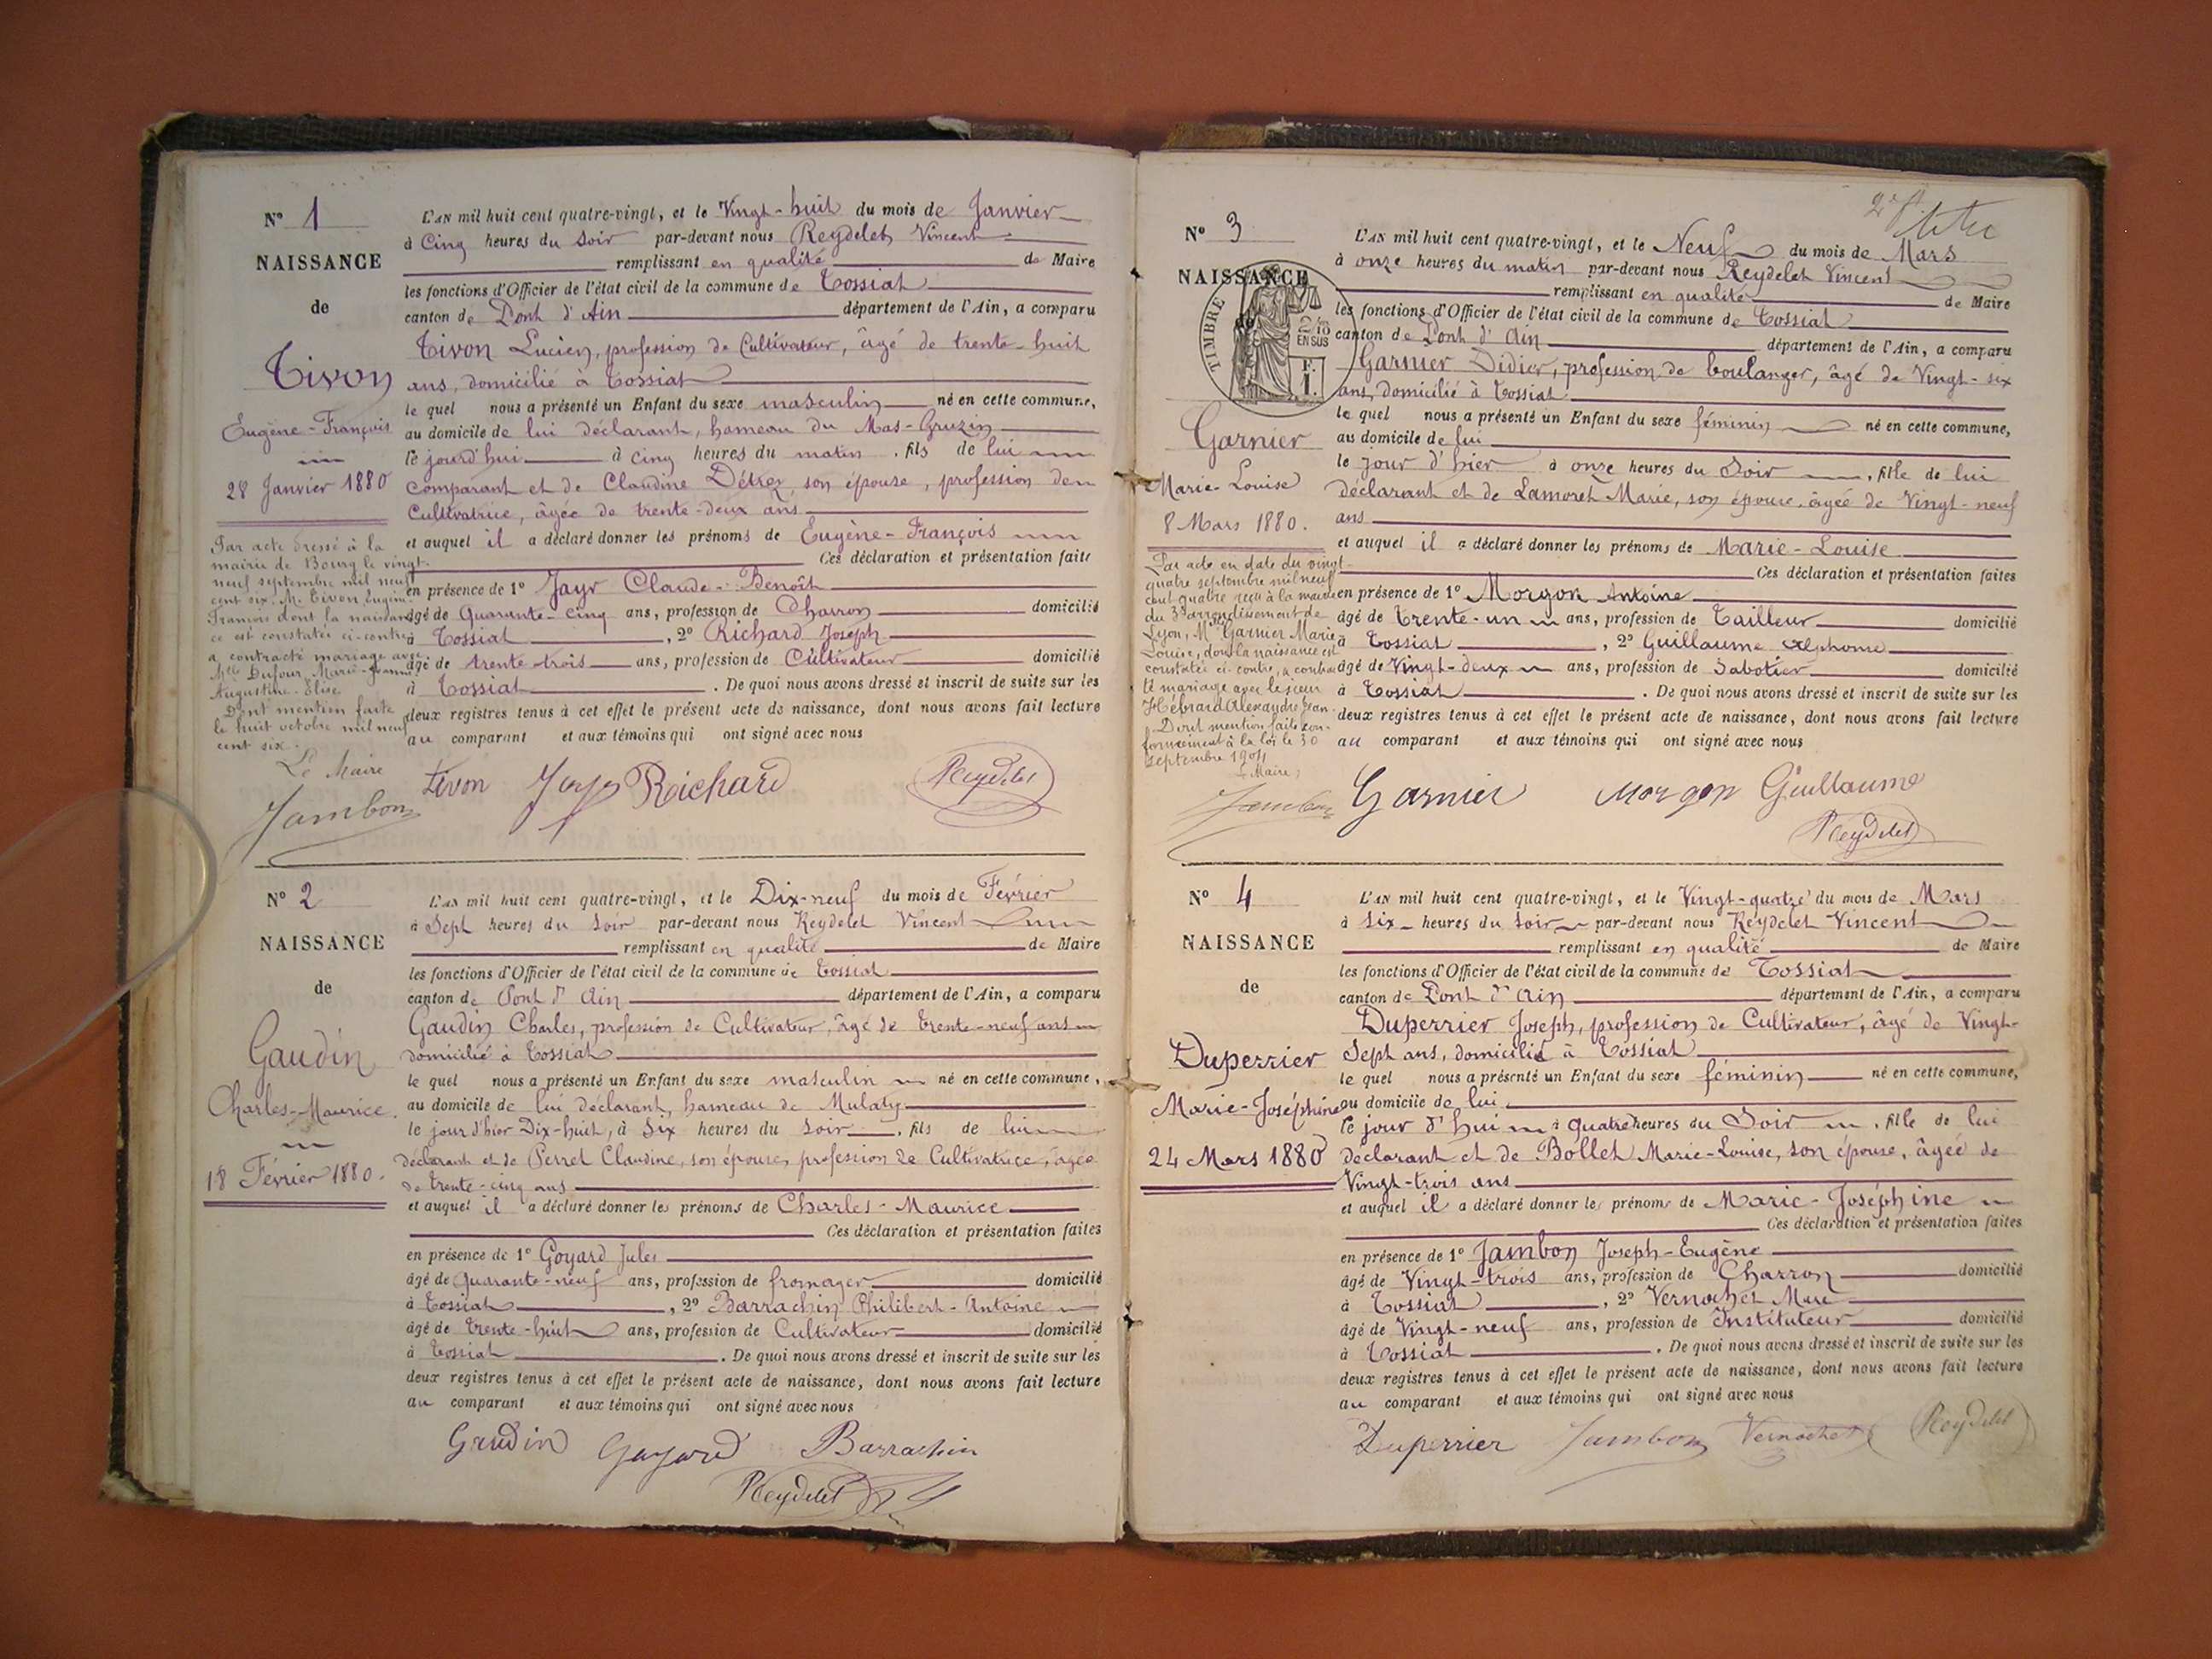 N° 1
NAISSANCE
de
Tivon
Eugène-François
28 Janvier 1880
Par acte dressé à la
mairie de Bourg le vingt-
neuf septembre mil neuf
cent six, M. Tivon Eugène
François dont la naissan-
ce est constatée ci-contre
a contracté mariage avec
Mlle Dufour Marie-Jeanne
Augustine-Elise
Dont mention faite
le huit octobre mil neuf
cent six.
Le Maire
Jambon
L'AN mil huit cent quatre-vingt, et le Vingt-huit du mois de Janvier
à Cinq heures du Soir par-devant nous Reydelet Vincent
remplissant en qualité de Maire
les fonctions d'Officier de l'état civil de la commune de Tossiat
canton de Pont d'Ain département de l'Ain, a comparu
Tivon Lucien, profession de Cultivateur, âgé de trente-huit
ans, domicilié à Tossiat
le quel nous a présenté un Enfant du sexe masculin né en cette commune,
au domicile de lui déclarant, hameau du Mas-Gruzin
le jourd'hui à cinq heures du matin, fils de lui
comparant et de Claudine Détrez, son épouse, profession de
Cultivatrice, âgée de trente-deux ans
et auquel il a déclaré donner les prénoms de Eugène-François
Ces déclaration et présentation faite
en présence de 1° Jayr Claude-Benoît
âgé de Quarante-cinq ans, profession de Charron domicilié
à Tossiat, 2° Richard Joseph
âgé de trente-trois ans, profession de Cultivateur domicilié
à Tossiat. De quoi nous avons dressé et inscrit de suite sur les
deux registres tenus à cet effet le présent acte de naissance, dont nous avons fait lecture
au comparant et aux témoins qui ont signé avec nous
Tivon Jayr Richard Reydelet
N° 2
NAISSANCE
de
Gaudin
Charles-Maurice.
18 Février 1880.
L'AN mil huit cent quatre-vingt, et le Dix-neuf du mois de Février
à Sept heures du Soir par-devant nous Reydelet Vincent
remplissant en qualité de Maire
les fonctions d'Officier de l'état civil de la commune de Tossiat
canton de Pont d'Ain département de l'Ain, a comparu
Gaudin Charles, profession de Cultivateur, âgé de trente-neuf ans
domicilié à Tossiat
le quel nous a présenté un Enfant du sexe masculin né en cette commune,
au domicile de lui déclarant, hameau de Mulaty
le jour d'hier Dix-huit, à Six heures du Soir, fils de lui
déclarant et de Perret Claudine, son épouse, profession de Cultivatrice, âgée
de trente-cinq ans
et auquel il a déclaré donner les prénoms de Charles-Maurice
Ces déclaration et présentation faites
en présence de 1° Goyard Jules
âgé de Quarante-neuf ans, profession de fromager domicilié
à Tossiat, 2° Barrachin Philibert-Antoine
âgé de trente-huit ans, profession de Cultivateur domicilié
à Tossiat. De quoi nous avons dressé et inscrit de suite sur les
deux registres tenus à cet effet le présent acte de naissance, dont nous avons fait lecture
au comparant et aux témoins qui ont signé avec nous
Gaudin Goyard Barrachin
Reydelet
N° 3
NAISSANCE
de
TIMBRE
2/10
EN SUS
F.
1.
Garnier
Marie-Louise
8 Mars 1880.
Par acte en date du vingt-
quatre septembre mil neuf
cent quatre reçu à la mairie
du 3e arrondissement de
Lyon, Mlle Garnier Marie
Louise, dont la naissance est
constatée ci-contre, a contrac
té mariage avec le sieur
Hébrard Alexandre Jean.
Dont mention faite con-
formément à la loi le 30
septembre 1904
Le Maire,
Jambon
L'AN mil huit cent quatre-vingt, et le Neuf du mois de Mars
à onze heures du matin par-devant nous Reydelet Vincent
remplissant en qualité de Maire
les fonctions d'Officier de l'état civil de la commune de Tossiat
canton de Pont d'Ain département de l'Ain, a comparu
Garnier Didier, profession de boulanger, âgé de Vingt-six
ans, domicilié à Tossiat
le quel nous a présenté un Enfant du sexe féminin né en cette commune,
au domicile de lui
le jour d'hier à onze heures du Soir, fille de lui
déclarant et de Lamoret Marie, son épouse, âgée de Vingt-neuf
ans
et auquel il a déclaré donner les prénoms de Marie-Louise
Ces déclaration et présentation faites
en présence de 1° Morgon Antoine
âgé de trente-un ans, profession de Tailleur domicilié
à Tossiat, 2° Guillaume Alphonse
âgé de Vingt-deux ans, profession de Sabotier domicilié
à Tossiat. De quoi nous avons dressé et inscrit de suite sur les
deux registres tenus à cet effet le présent acte de naissance, dont nous avons fait lecture
au comparant et aux témoins qui ont signé avec nous
Garnier Morgon Guillaume
Reydelet
N° 4
NAISSANCE
de
Duperrier
Marie-Joséphine
24 Mars 1880
L'AN mil huit cent quatre-vingt, et le Vingt-quatre du mois de Mars
à Six heures du Soir par-devant nous Reydelet Vincent
remplissant en qualité de Maire
les fonctions d'Officier de l'état civil de la commune de Tossiat
canton de Pont d'Ain département de l'Ain, a comparu
Duperrier Joseph, profession de Cultivateur, âgé de Vingt-
Sept ans, domicilié à Tossiat
le quel nous a présenté un Enfant du sexe féminin né en cette commune,
au domicile de lui
le jour d'hui à quatre heures du Soir, fille de lui
déclarant et de Bollet Marie-Louise, son épouse, âgée de
Vingt-trois ans
et auquel il a déclaré donner les prénoms de Marie-Joséphine
Ces déclaration et présentation faites
en présence de 1° Jambon Joseph-Eugène
âgé de Vingt-trois ans, profession de Charron domicilié
à Tossiat, 2° Vernochet Marc
âgé de Vingt-neuf ans, profession de Instituteur domicilié
à Tossiat. De quoi nous avons dressé et inscrit de suite sur les
deux registres tenus à cet effet le présent acte de naissance, dont nous avons fait lecture
au comparant et aux témoins qui ont signé avec nous
Duperrier Jambon Vernochet Reydelet